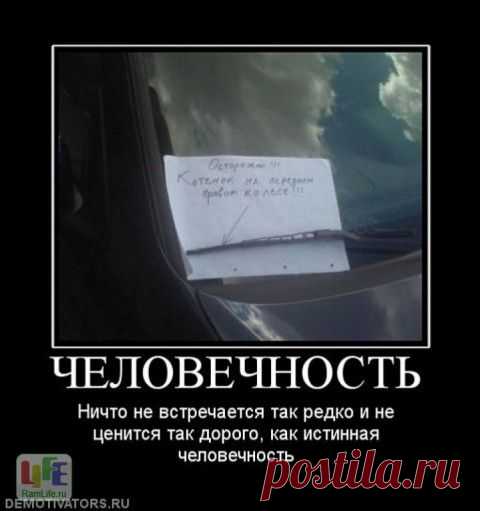 Осторожно!!!
Котенок на переднем
правом колесе!!!
ЧЕЛОВЕЧНОСТЬ
Ничто не встречается так редко и не
ценится так дорого, как истинная
человечность
LIFE
RamLife.ru
postila.ru
DEMOTIVATORS.RU